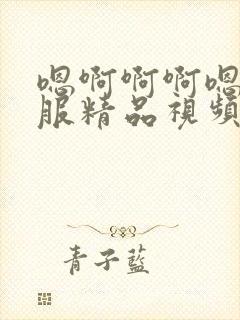 嗯啊啊啊嗯
服精品視頻
青子藍